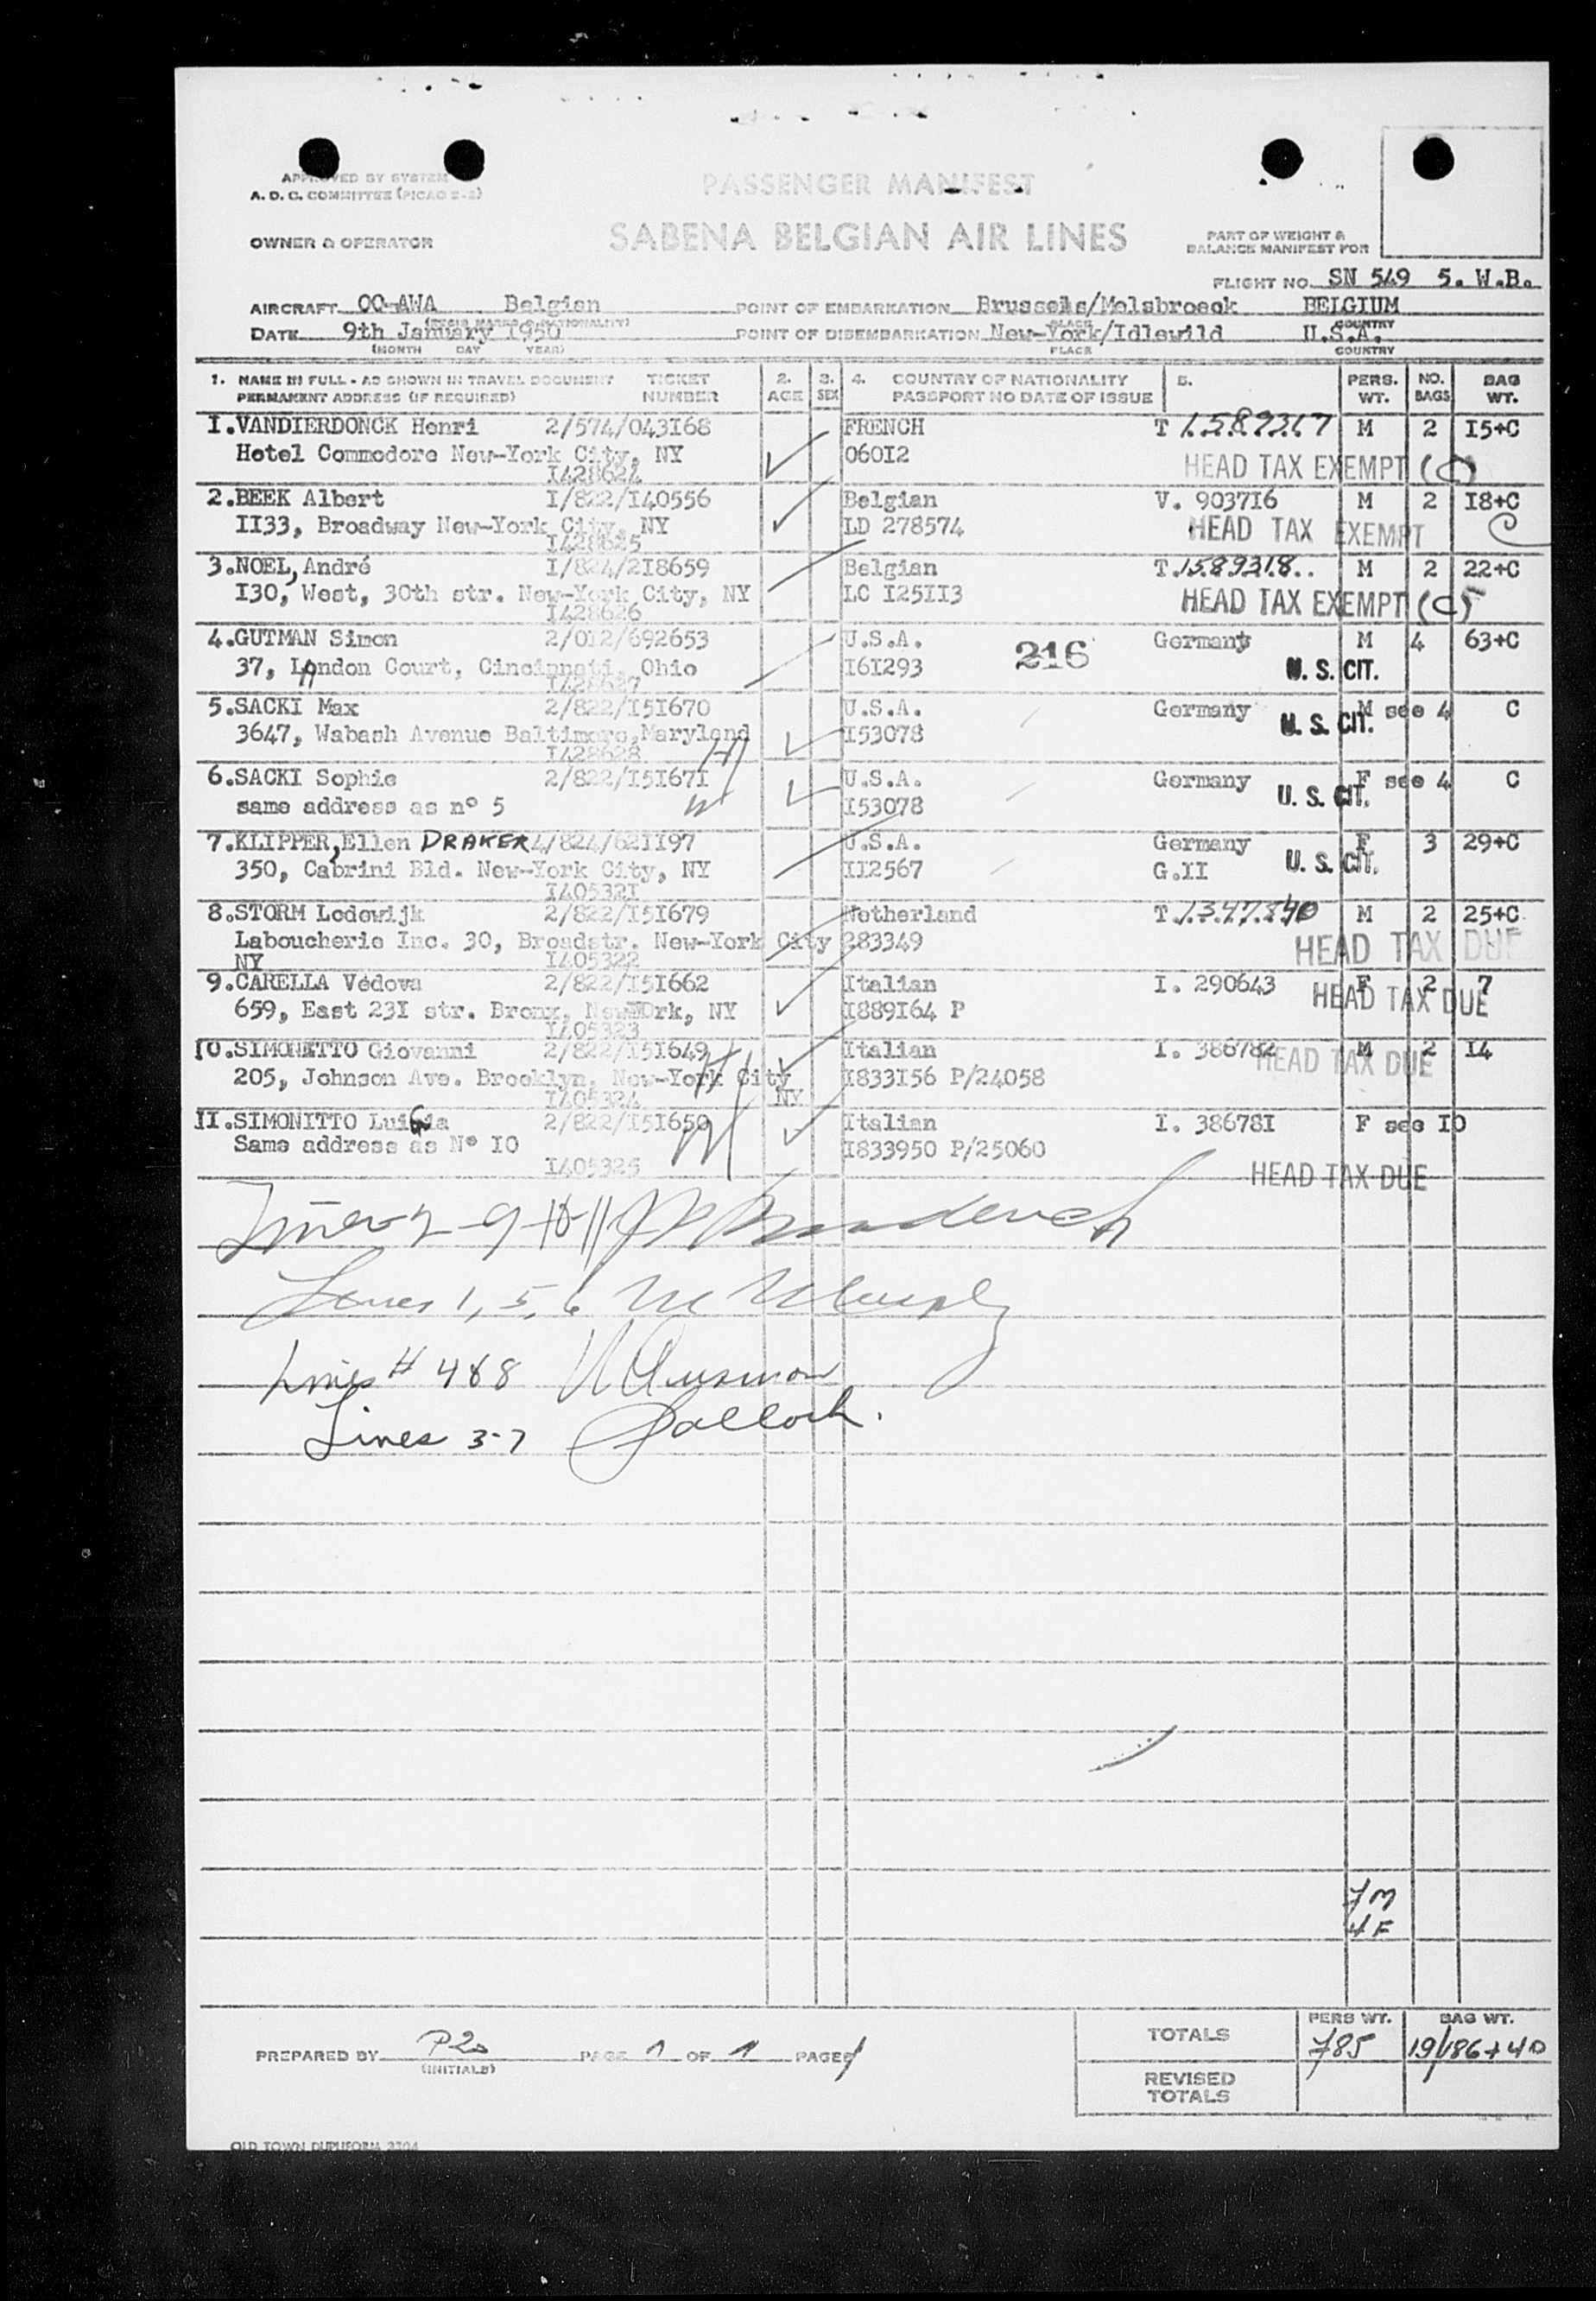 APPROVED BY SYSTEM
A. D. C. COMMITTEE (PICAO 2-2)
PASSENGER MANIFEST
OWNER & OPERATOR
SABENA BELGIAN AIR LINES
PART OF WEIGHT &
BALANCE MANIFEST FOR
FLIGHT NO. SN 549 5. W.B.
AIRCRAFT OO-AWA Belgian POINT OF EMBARKATION Brussels/Melsbroeck BELGIUM
(REGIS MARKS & NATIONALITY) PLACE COUNTRY
DATE 9th January 1950 POINT OF DISEMBARKATION New-York/Idlewild U.S.A.
(MONTH DAY YEAR) PLACE COUNTRY
1. NAME IN FULL - AS SHOWN IN TRAVEL DOCUMENT TICKET 2. 3. 4. COUNTRY OF NATIONALITY 5. PERS. NO. BAG
PERMANENT ADDRESS (IF REQUIRED) NUMBER AGE SEX PASSPORT NO DATE OF ISSUE WT. BAGS WT.
I.VANDIERDONCK Henri 2/574/043I68 FRENCH T 1589317 M 2 I5+C
Hotel Commodore New-York City, NY 060I2 HEAD TAX EXEMPT (C)
I428624
2.BEEK Albert I/822/I40556 Belgian V. 9037I6 M 2 I8+C
II33, Broadway New-York City, NY LD 278574 HEAD TAX EXEMPT C
I428625
3.NOEL, André I/824/2I8659 Belgian T.1589318.. M 2 22+C
I30, West, 30th str. New-York City, NY LC I25II3 HEAD TAX EXEMPT (C)
I428626
4.GUTMAN Simon 2/0I2/692653 U.S.A. 216 Germany M 4 63+C
37, London Court, Cincinnati, Ohio I6I293 U. S. CIT.
I428627
5.SACKI Max 2/822/I5I670 U.S.A. Germany M see 4 C
3647, Wabash Avenue Baltimore,Maryland I53078 U. S. CIT.
I428628
6.SACKI Sophie 2/822/I5I67I U.S.A. Germany F see 4 C
same address as n° 5 I53078 U. S. CIT.
7.KLIPPER,Ellen DRAKER 4/824/62II97 U.S.A. Germany F 3 29+C
350, Cabrini Bld. New-York City, NY II2567 G.II U. S. CIT.
I40532I
8.STORM Lodewijk 2/822/I5I679 Netherland T.1347840 M 2 25+C
Laboucherie Inc. 30, Broadstr. New-York City 283349 HEAD TAX DUE
NY I405322
9.CARELLA Védova 2/822/I5I662 Italian I. 290643 F 2 7
659, East 23I str. Bronx, NewYOrk, NY I889I64 P HEAD TAX DUE
I405323
IO.SIMONETTO Giovanni 2/822/I5I649 Italian I. 386782 M 2 I4
205, Johnson Ave. Brooklyn, New-York City I833I56 P/24058 HEAD TAX DUE
I405324 NY
II.SIMONITTO LuiGia 2/822/I5I650 Italian I. 38678I F see IO
Same address as N° IO I833950 P/25060
I405325 HEAD TAX DUE
Lines 1, 5, 6 Murphy
Lines # 4&8
Lines 3-7
7M
4F
TOTALS PERS WT. 785 BAG WT. 19/186+40
PREPARED BY PAGE 1 OF 1 PAGES
(INITIALS)
REVISED
TOTALS
OLD TOWN DUPLIFORM 3704